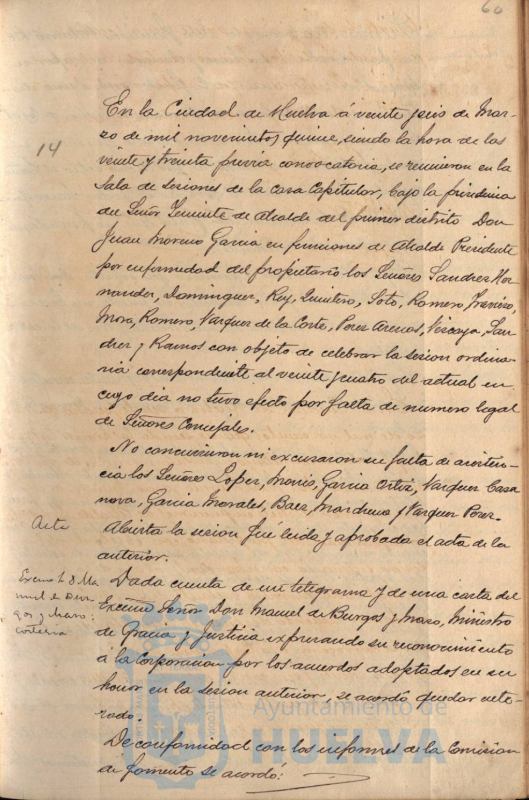 60
En la Ciudad de Huelva á veinte seis de Mar-
zo de mil novecientos quince, siendo la hora de las
14
veinte y treinta previa convocatoria, se reunieron en la
Sala de Sesiones de la casa Capitular, bajo la presidencia
del Señor Teniente de Alcalde del primer distrito Don
Juan Moreno Garcia en funciones de Alcalde Presidente
por enfermedad del propietario los Señores Sanchez Her-
nandez, Dominguez, Rey, Quintero, Soto, Romero,
Mora, Romero, Vazquez de la Corte, Perez Arenas, Vizcaya, San-
chez y Ramos con objeto de celebrar la sesion ordina-
ria correspondiente al veinte cuatro del actual en
cuyo dia no tuvo efecto por falta de numero legal
de Señores Concejales.
No concurrieron ni excusaron su falta de asisten-
cia los Señores Lopez, Garcia Ortiz, Vazquez Casa
nova, Garcia Morales, Baez, y Vazquez Perez.
Acta
Abierta la sesion fué leida y aprobada el acta de la
anterior.
Dada cuenta de un telegrama y de una carta del
Excmo Señor Don Manuel de Burgos y Mazo, Ministro
de Gracia y Justicia expresando su reconocimiento
á la Corporacion por los acuerdos adoptados en su
honor en la sesion anterior, se acordó quedar ente-
rado.
De conformidad con los informes de la Comision
de fomento se acordó:
Ayuntamiento de
HUELVA